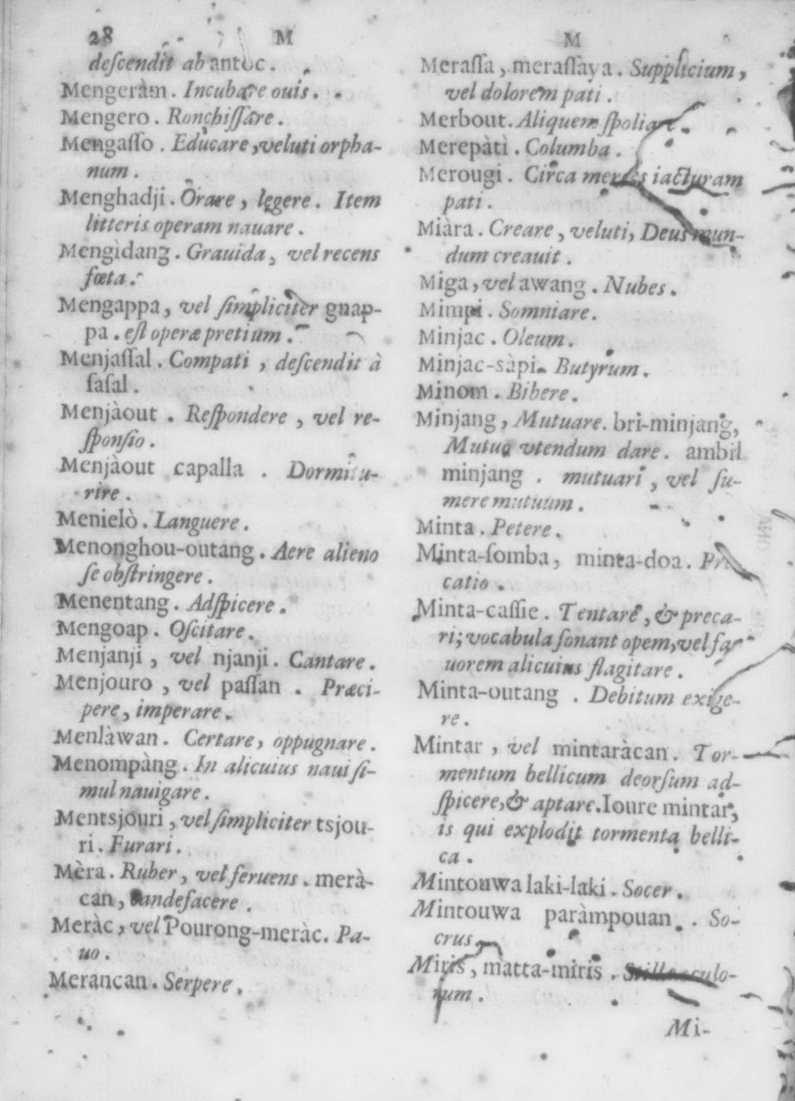 28 M
deſcendit ab antoc.
Mengeràm. Incubare ouis.
Mengero. Ronchiſſare.
Mengaſſo. Educare, veluti orpha-
num.
Menghadji. Orare, legere. Item
litteris operam nauare.
Mengidang. Grauida, vel recens
fœta.
Mengappa, vel ſimpliciter gnap-
pa. eſt operæ pretium.
Menjaſſal. Compati, deſcendit à
ſaſal.
Menjàout. Reſpondere, vel re-
ſponſio.
Menjàout capalla. Dormitu-
rire.
Menielò. Languere.
Menonghou-outang. Aere alieno
ſe obſtringere.
Menentang. Adſpicere.
Mengoap. Oſcitare.
Menjanji, vel njanji. Cantare.
Menjouro, vel paſſan. Præci-
pere, imperare.
Menlàwan. Certare, oppugnare.
Menompàng. In alicuius naui ſi-
mul nauigare.
Mentsjouri, vel ſimpliciter tsjou-
ri. Furari.
Mèra. Ruber, vel feruens. merà-
can, candefacere.
Meràc, vel Pourong-meràc. Pa-
uo.
Merancan. Serpere.
M
Meraſſa, meraſſaya. Supplicium,
vel dolorem pati.
Merbout. Aliquem ſpoliare.
Merepàti. Columba.
Merougi. Circa merces iacturam
pati.
Miàra. Creare, veluti, Deus mun-
dum creauit.
Miga, vel awang. Nubes.
Mimpi. Somniare.
Minjac. Oleum.
Minjac-sàpi. Butyrum.
Minom. Bibere.
Minjang, Mutuare. bri-minjang,
Mutuo vtendum dare. ambil
minjang. mutuari, vel ſu-
mere mutuum.
Minta. Petere.
Minta-ſomba, minta-doa. Pre-
catio.
Minta-caſſie. Tentare, & preca-
ri; vocabula ſonant opem, vel fa-
uorem alicuius flagitare.
Minta-outang. Debitum exige-
re.
Mintar, vel mintaràcan. Tor-
mentum bellicum deorſum ad-
ſpicere, & aptare. Ioure mintar,
is qui explodit tormenta belli-
ca.
Mintouwa laki-laki. Socer.
Mintouwa paràmpouan. So-
crus.
Miris, matta-miris. oculo-
rum.
Mi-